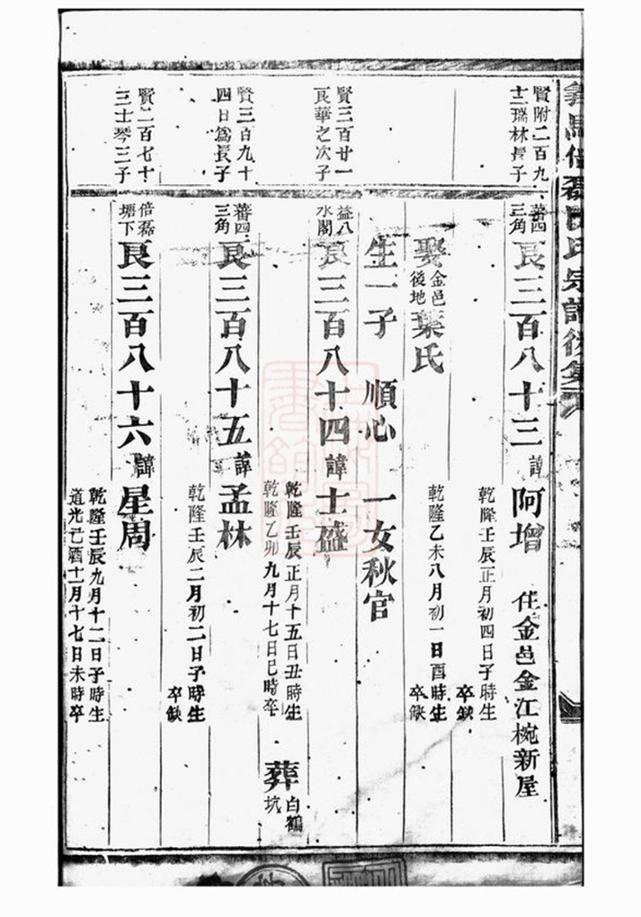 賢附二百九
十二瑞林長子
蕃四
三角
良三百八十三諱阿增
住金邑金江椀新屋
乾隆壬辰正月初四日子時生
卒缺
娶金邑後地葉氏
乾隆乙未八月初一日酉時生
卒缺
生一子 順心 一女秋官
賢三百廿一
良華之次子
益八
水閣
良三百八十四諱士盛
乾隆壬辰正月十五日丑時生
乾隆乙卯九月十七日巳時卒
葬白鶴坑
賢三百九十
四日為長子
蕃四
三角
良三百八十五諱孟林
乾隆壬辰二月初二日子時生
卒缺
賢二百七十
三士琴三子
倍磊
塘下
良三百八十六諱星周
乾隆壬辰九月十二日子時生
道光己酉十一月十七日未時卒